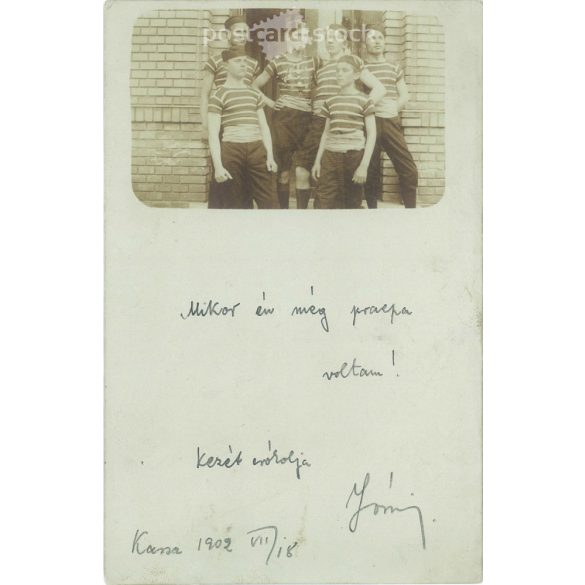 postcardstock
Mikor én még praepa
voltam!
Kezét csókolja
Kassa 1902 VII/18